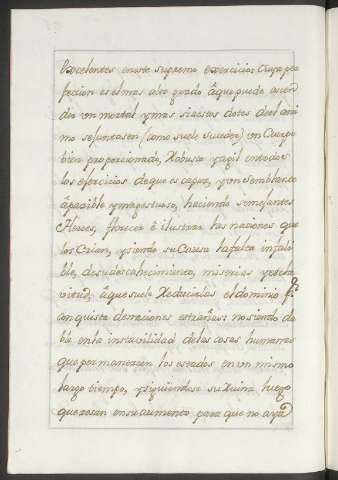 Excelentes eneste supremo exercicio; Cuya per
feccion es el mas alto grado âque puede ascen
der vn mortal y mas si aestas dotes del ani
mo se juntasen (como suele suceder) vn Cuerpo
bien proporcionado, Robusto y agil en todos
los exercicios de que es capaz, y vn semblante
âpacible y magestuoso, haciendo semejantes
Heroes, florecer ê ilustrar las naciones que
los Crian, y siendo su Carencia la falta infali
ble, de su descahecimiento, miserias y
virtud, â que suele Reducirlas el dominio ô
conquista de naciones estrañas: no siendo da
ble en la instavilidad de las cosas humanas
que permanezcan los estados en vn mismo
largo tiempo, y siguiendose su Ruina luego
que cesan en su aumento para que no aya